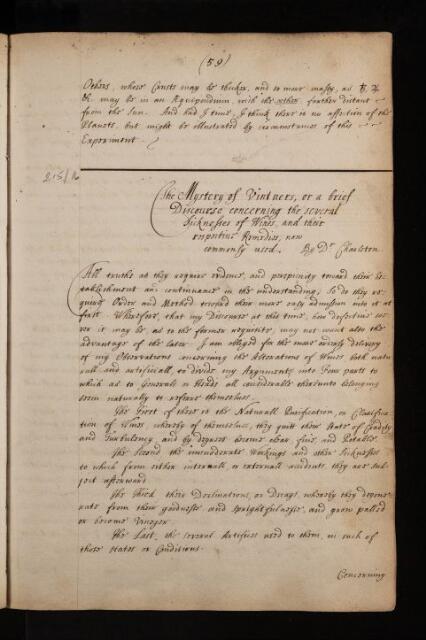 (59)
Others, whose Crusts may be thicker, and so more massy, as ♄, ♃
&c. may be in an Æquipondium, with the other, further distant
from the Sun. And had I time, I think there is no affection of the
Planets, but might be illustrated by circumstances of this
Experiment.
215/16
The Mystery of Vintners, or a brief
Discourse concerning the several
Sicknesses of Wines, and their
respective Remedies, now
commonly used. By Dr Charleton.
All truths as they require evidence, and perspicuity toward their Es-
tablishment and continuance in the understanding, So do they re-
quire Order and Method toward their more easy admission into it at
first. Wherefore, that my Discourse at this time, how defective soe-
ver it may be, as to the former requisite, may not want also the
advantage of the later. I am obliged for the more orderly delivery
of my Observations concerning the Alterations of Wines both natu-
rall and artificiall, to divide my Arguments into Four parts to
which as to Generals or Heads all considerable thereunto belonging
seem naturally to referre themselves.
The First of these is the Naturall Purification, or Clarifica-
tion of Wines, whereby of themselves, they quitt their State of Crudity
and Turbulency, and by degrees become clear, fine, and Potable.
The Second the immoderate Workings and other Sicknesses
to which from either internall, or externall accidents, they are sub-
ject afterward.
The Third their Declinations, or Decays, whereby they degene-
rate from their goodnesse and sprightfulnesse, and grow palled
or become Vinegar.
The Last, the severall Artifices used to them, in each of
those States or Conditions.
Concerning